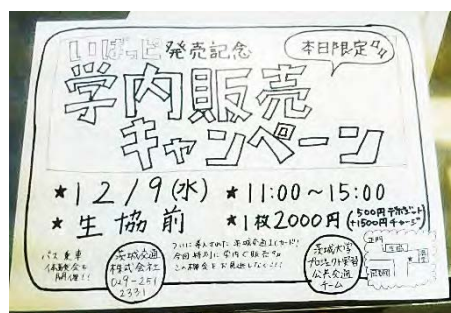 いばっピ 発売記念
本日限定!!
学内販売
キャンペーン
★12/9(水) ★11:00~15:00
★生協前 ★1枚2000円(500円デポジット
+1500円チャージ)
バス乗車
体験会も
開催!!
茨城交通
株式会社
029-251
2331
ついに導入された茨城交通ICカード!
今回特別に学内で販売!!
この機会をお見逃しなく!!
茨城大学
プロジェクト実習
公共交通
チーム
正門
生協